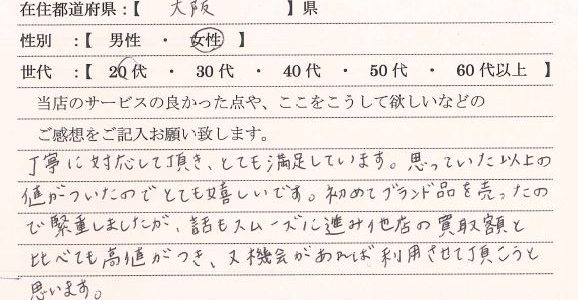 在住都道府県:【 大阪 】県
性別:【 男性 ・ 女性 】
世代:【 20代 ・ 30代 ・ 40代 ・ 50代 ・ 60代以上 】
当店のサービスの良かった点や、ここをこうして欲しいなどの
ご感想をご記入お願い致します。
丁寧に対応して頂き、とても満足しています。思っていた以上の
値がついたのでとても嬉しいです。初めてブランド品を売ったの
で緊重しましたが、話もスムーズに進み他店の買取額と
比べても高値がつき、又機会があれば利用させて頂こうと
思います。